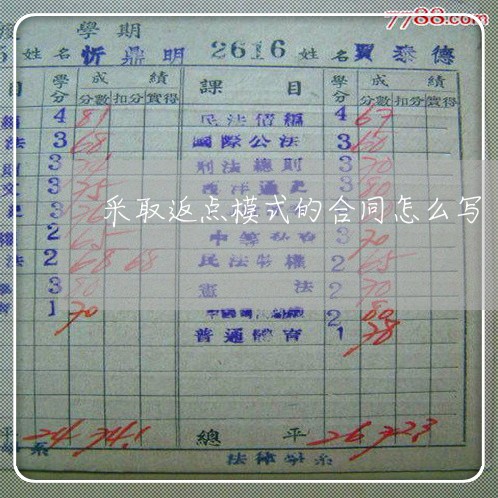 7788.com
學期
姓名 忻鼎明 2616 姓名 賈泰德
目 學分 成績 課目 學分 成績
分數 扣分 實得 分數 扣分 實得
4 81 民法債編 4 67
法 3 68 國際公法 3 60
3 刑法總則 3 70
3 75 西洋通史 3 80
采取返点模式的合同怎么写
2 65 3 70
法 2 68 68 民法物權 2 65
3 80 憲法 2 70
1 70 2 80
普通體育 1 78
平 24 74.1 總平 26 72.3
系 法律學系